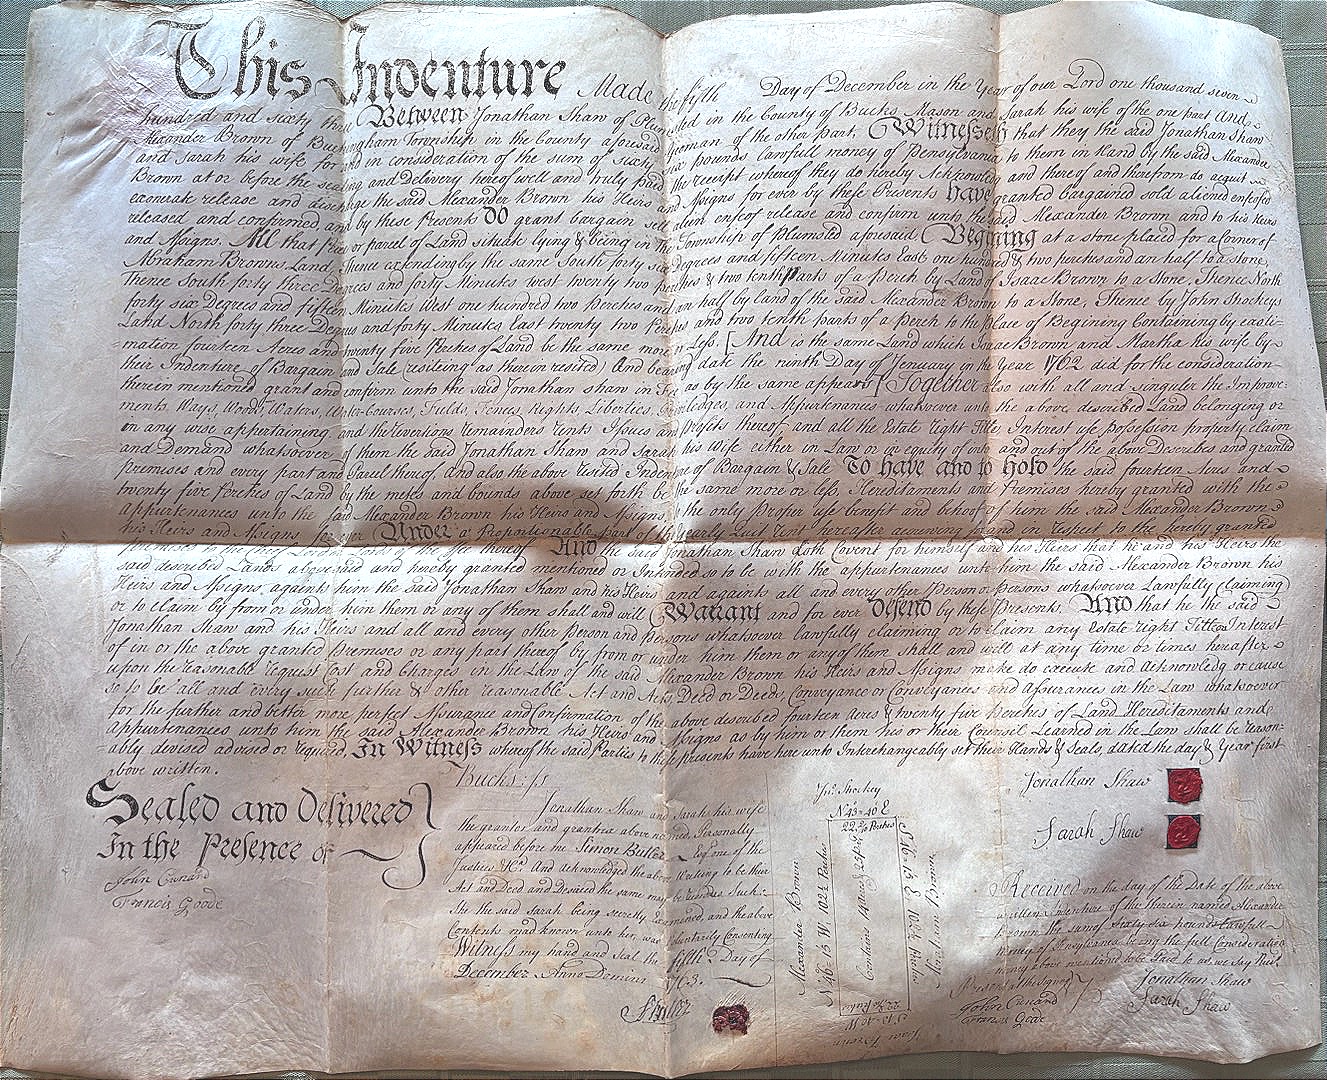 This Indenture Made the fifth Day of December in the Year of our Lord one thousand seven
hundred and sixty three Between Jonathan Shaw of Plumsted in the County of Bucks Mason and Sarah his wife of the one part And
Alexander Brown of Buckingham Township in the County aforesaid Yeoman of the other part, Witnesseth that they the said Jonathan Shaw
and Sarah his wife for and in consideration of the sum of sixty six pounds lawfull money of Pensylvania to them in Hand by the said Alexander
Brown at or before the sealing and Delivery hereof well and truly paid the receipt whereof they do hereby Acknowledge and thereof and therefrom do acquit
exonerate release and discharge the said Alexander Brown his Heirs and Assigns for ever by these Presents have granted bargained sold aliened enfeofed
released and confirmed, and by these Presents Do grant bargain sell alien enfeof release and confirm unto the said Alexander Brown and to his Heirs
and Assigns. All that piece or parcel of Land situate lying & being in the Township of Plumsted aforesaid Begining at a stone placed for a Corner of
Abraham Browns Land, Thence extending by the same South forty six Degrees and fifteen Minutes East one hundred & two perches and an half to a stone,
Thence South forty three Degrees and forty Minutes west twenty two perches & two tenth parts of a Perch by Land Isaac Brown to a Stone, Thence North
forty six Degrees and fifteen Minutes West one hundred two Perches and an half by land of the said Alexander Brown to a Stone, Thence by John Shockeys
Land North forty three Degrees and forty Minutes East twenty two Perches and two tenth parts of a Perch to the place of Begining Containing by easti-
mation fourteen Acres and twenty five Perches of Land be the same more or Less. [And is the same Land which Isaac Brown and Martha his wife by
their Indenture of Bargain and Sale resiteing as therein resited) And bearing date the ninth Day of Jenuary in the Year 1762 did for the consideration
therein mentioned grant and confirm unto the said Jonathan shaw in Fee as by the same appears] Together also with all and singuler the Improve-
ments, Ways, Woods, Waters, Water-Courses, Fields, Fences, Rights, Liberties, Priviledges, and Appurtenances whatsoever unto the above described Land belonging or
in any wise appertaining, and the reversions remainders rents Issues and profits thereof and all the Estate right Title Interest use possession property claim
and Demand whatsoever of them the said Jonathan Shaw and Sarah his wife either in Law or in equity of in and out of the above Describes and granted
premises and every part and Parcel thereof, and also the above resited Indenture of Bargain & Sale To have and to hold the said fourteen Acres and
twenty five Perches of Land by the metes and bounds above set forth be the same more or less, Hereditaments and Premises hereby granted with the
appurtenances unto the said Alexander Brown his Heirs and Assigns, to the only Proper use benefit and behoof of him the said Alexander Brown
his Heirs and Assigns for ever Under a Proportionable part of the Yearly Quit Rent hereafter accruing and in respect to the hereby granted
premises to the Chief Lord or Lords of the fee thereof And the said Jonathan Shaw doth Covent for himself and his Heirs that he and his Heirs the
said described Land above said and hereby granted mentioned or Intended so to be with the appurtenances unto him the said Alexander Brown his
Heirs and Assigns, againts him the said Jonathan Shaw and his Heirs and againts all and every other Person or persons whatsoever Lawfully claiming
or to claim by from or under him them or any of them shall and will Warrant and for ever Defend by these Presents. And that he the said
Jonathan Shaw and his Heirs and all and every other Person and Persons whatsoever Lawfully claiming or to Claim any Estate right Tittle or Interest
of in or the above granted Premises or any part thereof by from or under him them or any of them shall and will at any time or times hereafter
upon the reasonable request Cost and Charges in the Law of the said Alexander Brown his Heirs and Assigns make do execute and acknowledg or cause
so to be all and every such further & other reasonable Act and Acts, Deed or Deeds, Conveyance or Conveyances and Assurances in the Law whatsoever
for the further and better more perfect Assurance and Confirmation of the above described fourteen Acres & twenty five Perches of Land Hereditaments and
Appurtenances unto him the said Alexander Brown his Heirs and Assigns as by him or them his or their Counsel Learned in the Law shall be reason-
ably devised advised or required. In Witness whereof the said Parties to these presents have here unto Interchangeably set their Hands & Seals, dated the day & Year first
above written.
Sealed and Delivered
In the Presence of
John Cunard
Francis Goode
Bucks: ss
Jonathan Shaw and Sarah his wife
the grantor and grantra above named Personally
appeared before me Simon Butler Esqr. one of the
Justices &ca. And acknowledged the above Writing to be their
Act and Deed and Desired the same may be recorded as such:
She the said Sarah being secretly Examined, and the above
Contents mad known unto her, was Voluntarily Consenting
Witness my hand and Seal the fifth Day of
December Anno Domini 1763.
S Butler
Jno. Shockey
N 43°-40' E
22 2/10 Perches
Alexander Brown
N 46°-15' W 102½ Perches
Contains 14 acres 25 ps
S 46°-15' E 102½ Perches
Abraham Brown
22 2/10 Perches
S 43°-40' W
Isaac Brown
Jonathan Shaw
Sarah Shaw
Received on the day of the Date of the above
written Indenture of the therein named Alexander
Brown the sum of Sixty six pounds Lawfull
money of Pensylvania being the full Consideration
money above mentioned to be Paid to us we say Recd.
Present at the signing
John Cunard
Francis Goode
Jonathan Shaw
Sarah Shaw